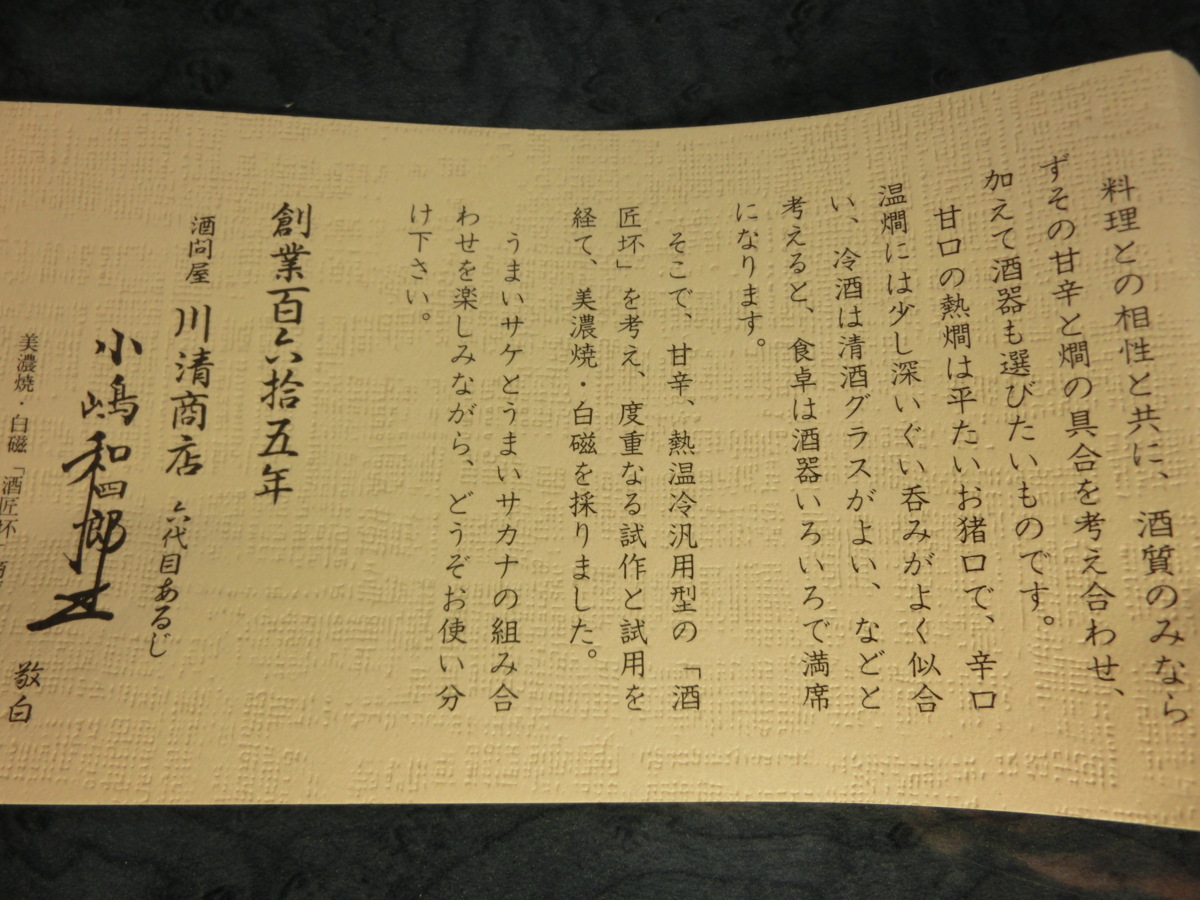 料理との相性と共に、酒質のみなら
ずその甘辛と燗の具合を考え合わせ、
加えて酒器も選びたいものです。
甘口の熱燗は平たいお猪口で、辛口
温燗には少し深いぐい呑みがよく似合
い、冷酒は清酒グラスがよい、などと
考えると、食卓は酒器いろいろで満席
になります。
そこで、甘辛、熱温冷汎用型の「酒
匠坏」を考え、度重なる試作と試用を
経て、美濃焼・白磁を採りました。
うまいサケとうまいサカナの組み合
わせを楽しみながら、どうぞお使い分
け下さい。
創業百六拾五年
酒問屋 川清商店 六代目あるじ
小嶋和四郎 敬白
美濃焼・白磁「酒匠坏」